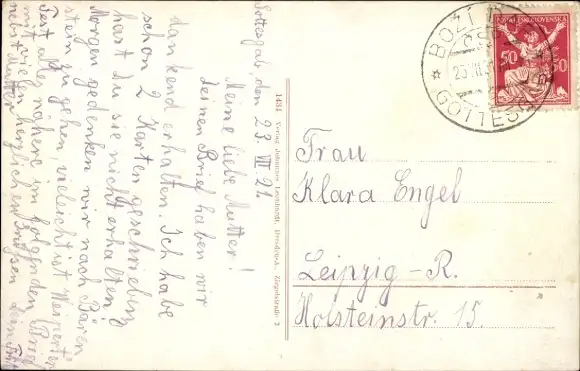 Gottesgab, den 23. VII. 21.
Meine liebe Mutter!
Deinen Brief haben wir
dankend erhalten. Ich habe
schon 2 Karten geschrieben,
hast Du sie nicht erhalten?
Morgen gedenken wir nach Bären-
stein zu gehen, vielleicht ist Meinerten
Fest alles nähere im folgenden Brief
mit vielen herzlichen Grüssen Dein
nebst Mutter
1451 Verlag Johannes Dresden, Ziegelstraße 2
BOŽÍ D
ČSP
23 VII 21
GOTTESG
POŠTA ČESKOSLOVENSKÁ
50 50
Frau
Klara Engel
Leipzig-R.
Holsteinstr. 15.